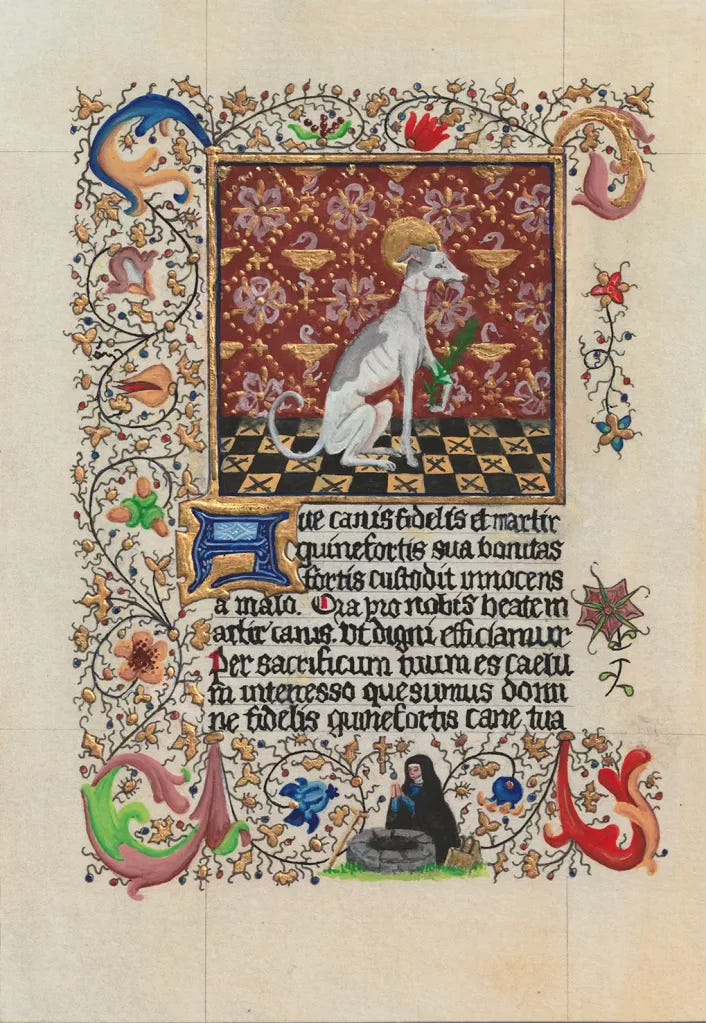 Aue canis fidelis et martir
quinefortis sua bonitas
fortis custodit innocens
a malo. Ora pro nobis beatem
artir canis. Vt digni efficiamur
per sacrificum tuum es caelu
m interresso quesumus domi
ne fidelis quinefortis cane tua